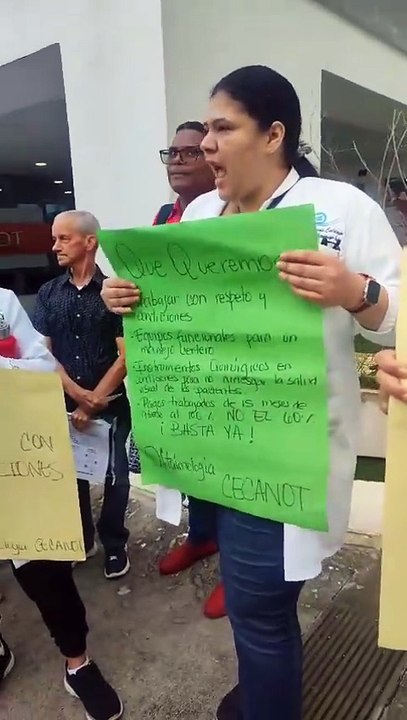 Que Queremos
Trabajar con respeto y
condiciones
- Equipos funcionales para un
manejo certero
- Instrumentos Quirúrgicos en
condiciones para no arriesgar la salud
visual de los pacientes.
- Pagos trabajados de 15 meses de
al 100% NO EL 60%
¡ BASTA YA !
Oftalmología
CECANOT
CON
CIONES
Cirugía CECANOT
NOT